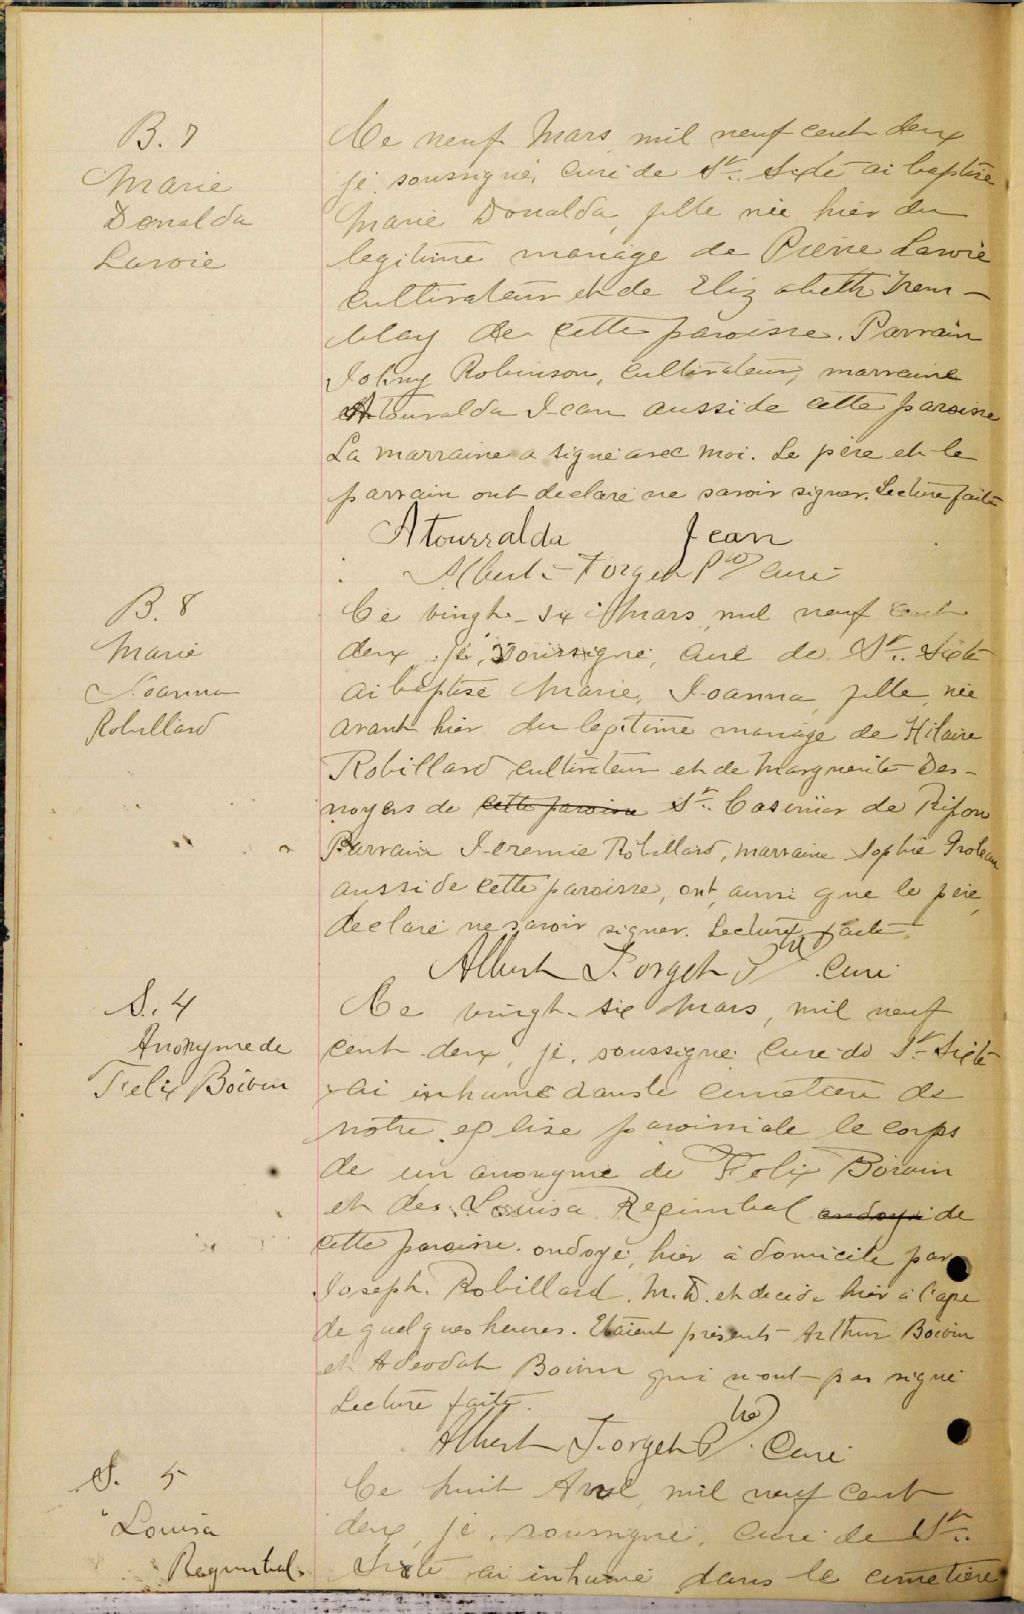 B. 7
Marie
Donalda
Lavoie
Ce neuf Mars mil neuf cent deux
je, soussigné, curé de St. Sixte ai baptisé
Marie Donalda, fille née hier du
legitime mariage de Pierre Lavoie
cultivateur et de Elizabeth Trem-
blay de cette paroisse. Parrain
Johny Robinson, cultivateur, marraine
Atouralda Jean aussi de cette paroisse
La marraine a signé avec moi. Le père et le
parrain ont declaré ne savoir signer. Lecture faite
Atourralda Jean
Albert Forget Ptre Curé
B. 8
Marie
Joanna
Robillard
Ce vingt-six Mars, mil neuf cent
deux, je, soussigné, curé de St. Sixte
ai baptisé Marie, Joanna, fille née
avant hier du legitime mariage de Hilaire
Robillard cultivateur et de Marguerite Des-
noyers de cette paroisse St. Casimir de Ripon
Parrain Jeremie Robillard, marraine Sophie Proteau
aussi de cette paroisse, ont, aussi que le père,
declaré ne savoir signer. Lecture faite
Albert Forget Ptre Curé
S. 4
Anonyme de
Felix Boivin
Ce vingt-six Mars, mil neuf
cent deux, je, soussigné curé de St Sixte
ai inhumé dans le cimetiere de
notre eglise paroissiale le corps
de un anonyme de Felix Boivin
et de Louisa Regimbal ondoyé de
cette paroisse. ondoyé, hier à domicile par
Joseph. Robillard. M.D. et decedé hier à l'age
de quelques heures. Etaient présents Arthur Boivin
et Adeodat Boivin qui n'ont pas signé
Lecture faite.
Albert Forget Ptre Curé
S. 5
Louisa
Regimbal
Ce huit Avril, mil neuf cent
deux, je, soussigné, curé de St.
Sixte ai inhumé dans le cimetière